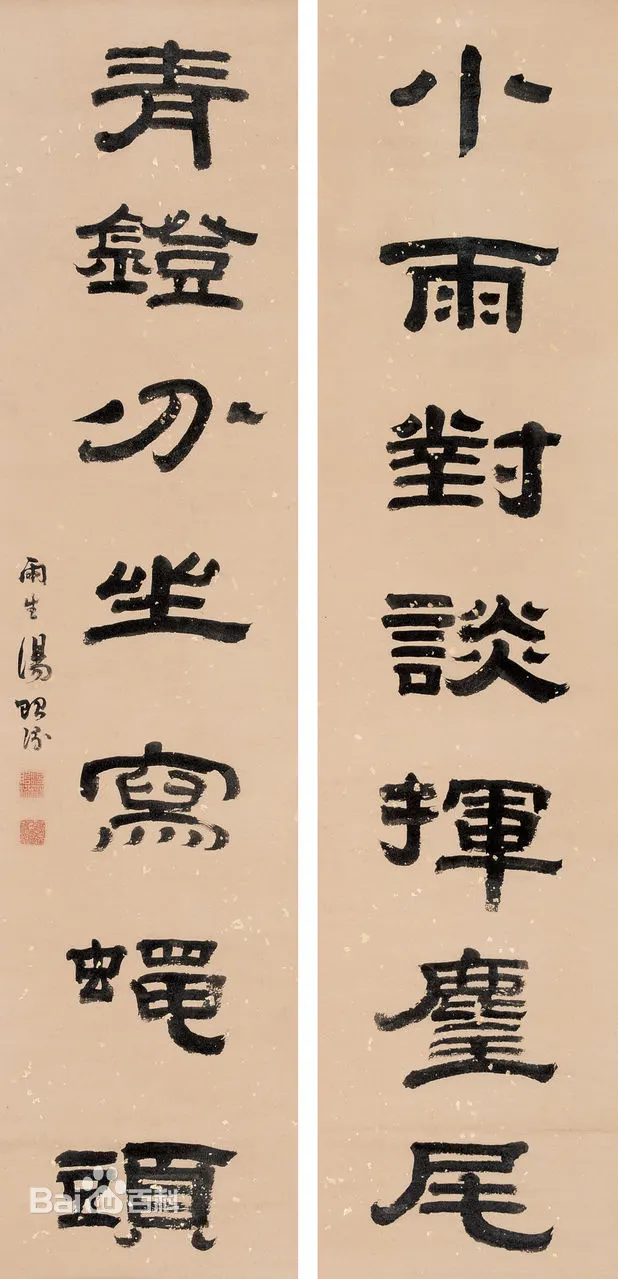 小雨對談揮麈尾
青鐙分坐寫蠅頭
雨生湯貽汾
Bai百科